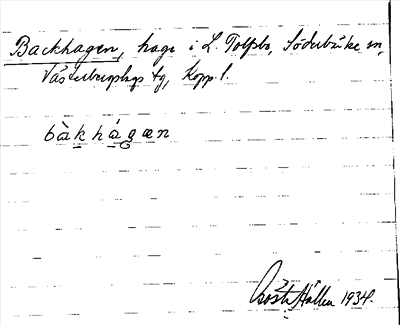 Backhagen, hage i L. Tolfsbo, Söderbärke sn,
Västerbergslags tg, Kopp. l.
bàkhágæn
Gösta Hållen 1934.